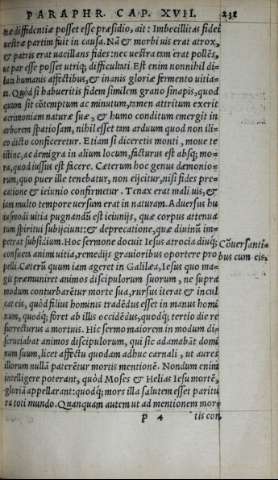 PARAPHR. CAP. XVII. 231
uæ diffidentiæ posset esse præsidio, ait: Imbecillitas fidei
uestræ partim fuit in causa. Nã & morbi uis erat atrox,
& patris erat uacillans fides: nec uestra tam erat pollẽs,
ut par esse posset utriq; difficultati. Est enim nonnihil
humanis affectibus, & inanis gloriæ fermento uitia-
ta. Quod si habueritis fidem similem grano sinapis, quod
quum sit cõtemptum ac minutum, tamen attritum exerit
acrimoniam naturæ suæ, & humo conditum emergit in
arborem spatiosam, nihil esset tam arduum quod non ilico
dicto conficeretur. Etiam si diceretis monti, moue te
istinc, ac demigra in alium locum, facturus est absq; mo-
ra, quod iussus est facere. Cæterum hoc genus dæmonio-
rum, quo puer ille tenebatur, non eijcitur, nisi fides pre-
catione & ieiunio confirmetur. Tenax erat mali uis, &
iam multo tempore uersum erat in naturam. Aduersus hu
iusmodi uitia pugnandũ est ieiunijs, quæ corpus attenua
tum spiritui subijciunt: & deprecatione, quæ diuinũ im-
petrat subsidium. Hoc sermone docuit Iesus atrocia diuq;
consueta animi uitia, remedijs grauioribus oportere pro
Cõuersanti-
pelli. Cæterũ quum iam ageret in Galilæa, Iesus quo ma-
bus cum eis.
gis præmuniret animos discipulorum suorum, ne supra
modum conturbarẽtur morte sua, rursus iterat & incul
cat eis, quòd filius hominis tradẽdus esset in manus homi
num, quodq; foret ab illis occidẽdus, quodq; tertio die re
surrecturus à mortuis. Hic sermo maiorem in modum di-
scruciabat animos discipulorum, qui sic adamabãt domi
num suum, licet affectu quodam adhuc carnali, ut aures
illorum nullã paterẽtur mortis mentionẽ. Nondum enim
intelligere poterant, quòd Moses & Helias Iesu mortẽ,
gloriã appellarant: quodq; mors illa salutem esset paritu
ra toti mundo. Quanquam autem ut ad mentionem mor-
P 4 tis con